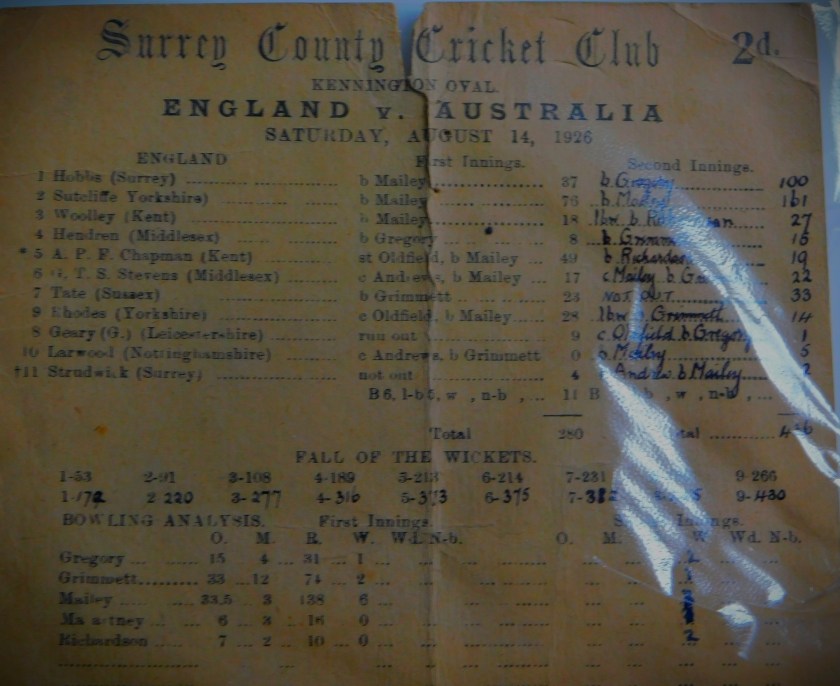 Surrey County Cricket Club 2d.
KENNINGTON OVAL.
ENGLAND v. AUSTRALIA
SATURDAY, AUGUST 14, 1926
ENGLAND First Innings. Second Innings.
1 Hobbs (Surrey) b Mailey 37 b Gregory 100
2 Sutcliffe Yorkshire) b Mailey 76 b Mailey 161
3 Woolley (Kent) b Mailey 18 lbw. b 27
4 Hendren (Middlesex) b Gregory 8 b. Grimmett 15
* 5 A. P. F. Chapman (Kent) st Oldfield, b Mailey 49 b. Richardson 19
6 T. S. Stevens (Middlesex) c Andrews, b Mailey 17 c Mailey b 22
7 Tate (Sussex) b Grimmett 23 NOT OUT 33
9 Rhodes (Yorkshire) c Oldfield, b Mailey 28 lbw b Grimmett 14
8 Geary (G.) (Leicestershire) run out 9 c Oldfield b. Gregory 1
10 Larwood (Nottinghamshire) c Andrews, b Grimmett 0 b. Mailey 5
†11 Strudwick (Surrey) not out 4 Andrews b Mailey 2
B 6, l-b 5, w , n-b , 11 B b , w , n-b ,
Total 280
FALL OF THE WICKETS.
1-53 2-91 3-108 4-189 5-213 6-214 7-231 9-266
1-172 2 220 3-277 4-316 5-373 6-375 7-382 9-430
BOWLING ANALYSIS. First Innings. Innings.
O. M. R. W. Wd. N-b. O. M. W. Wd. N-b.
Gregory 15 4 31 1
Grimmett 33 12 74 2
Mailey 33.5 3 138 6
6 3 16 0
Richardson 7 2 10 0 2